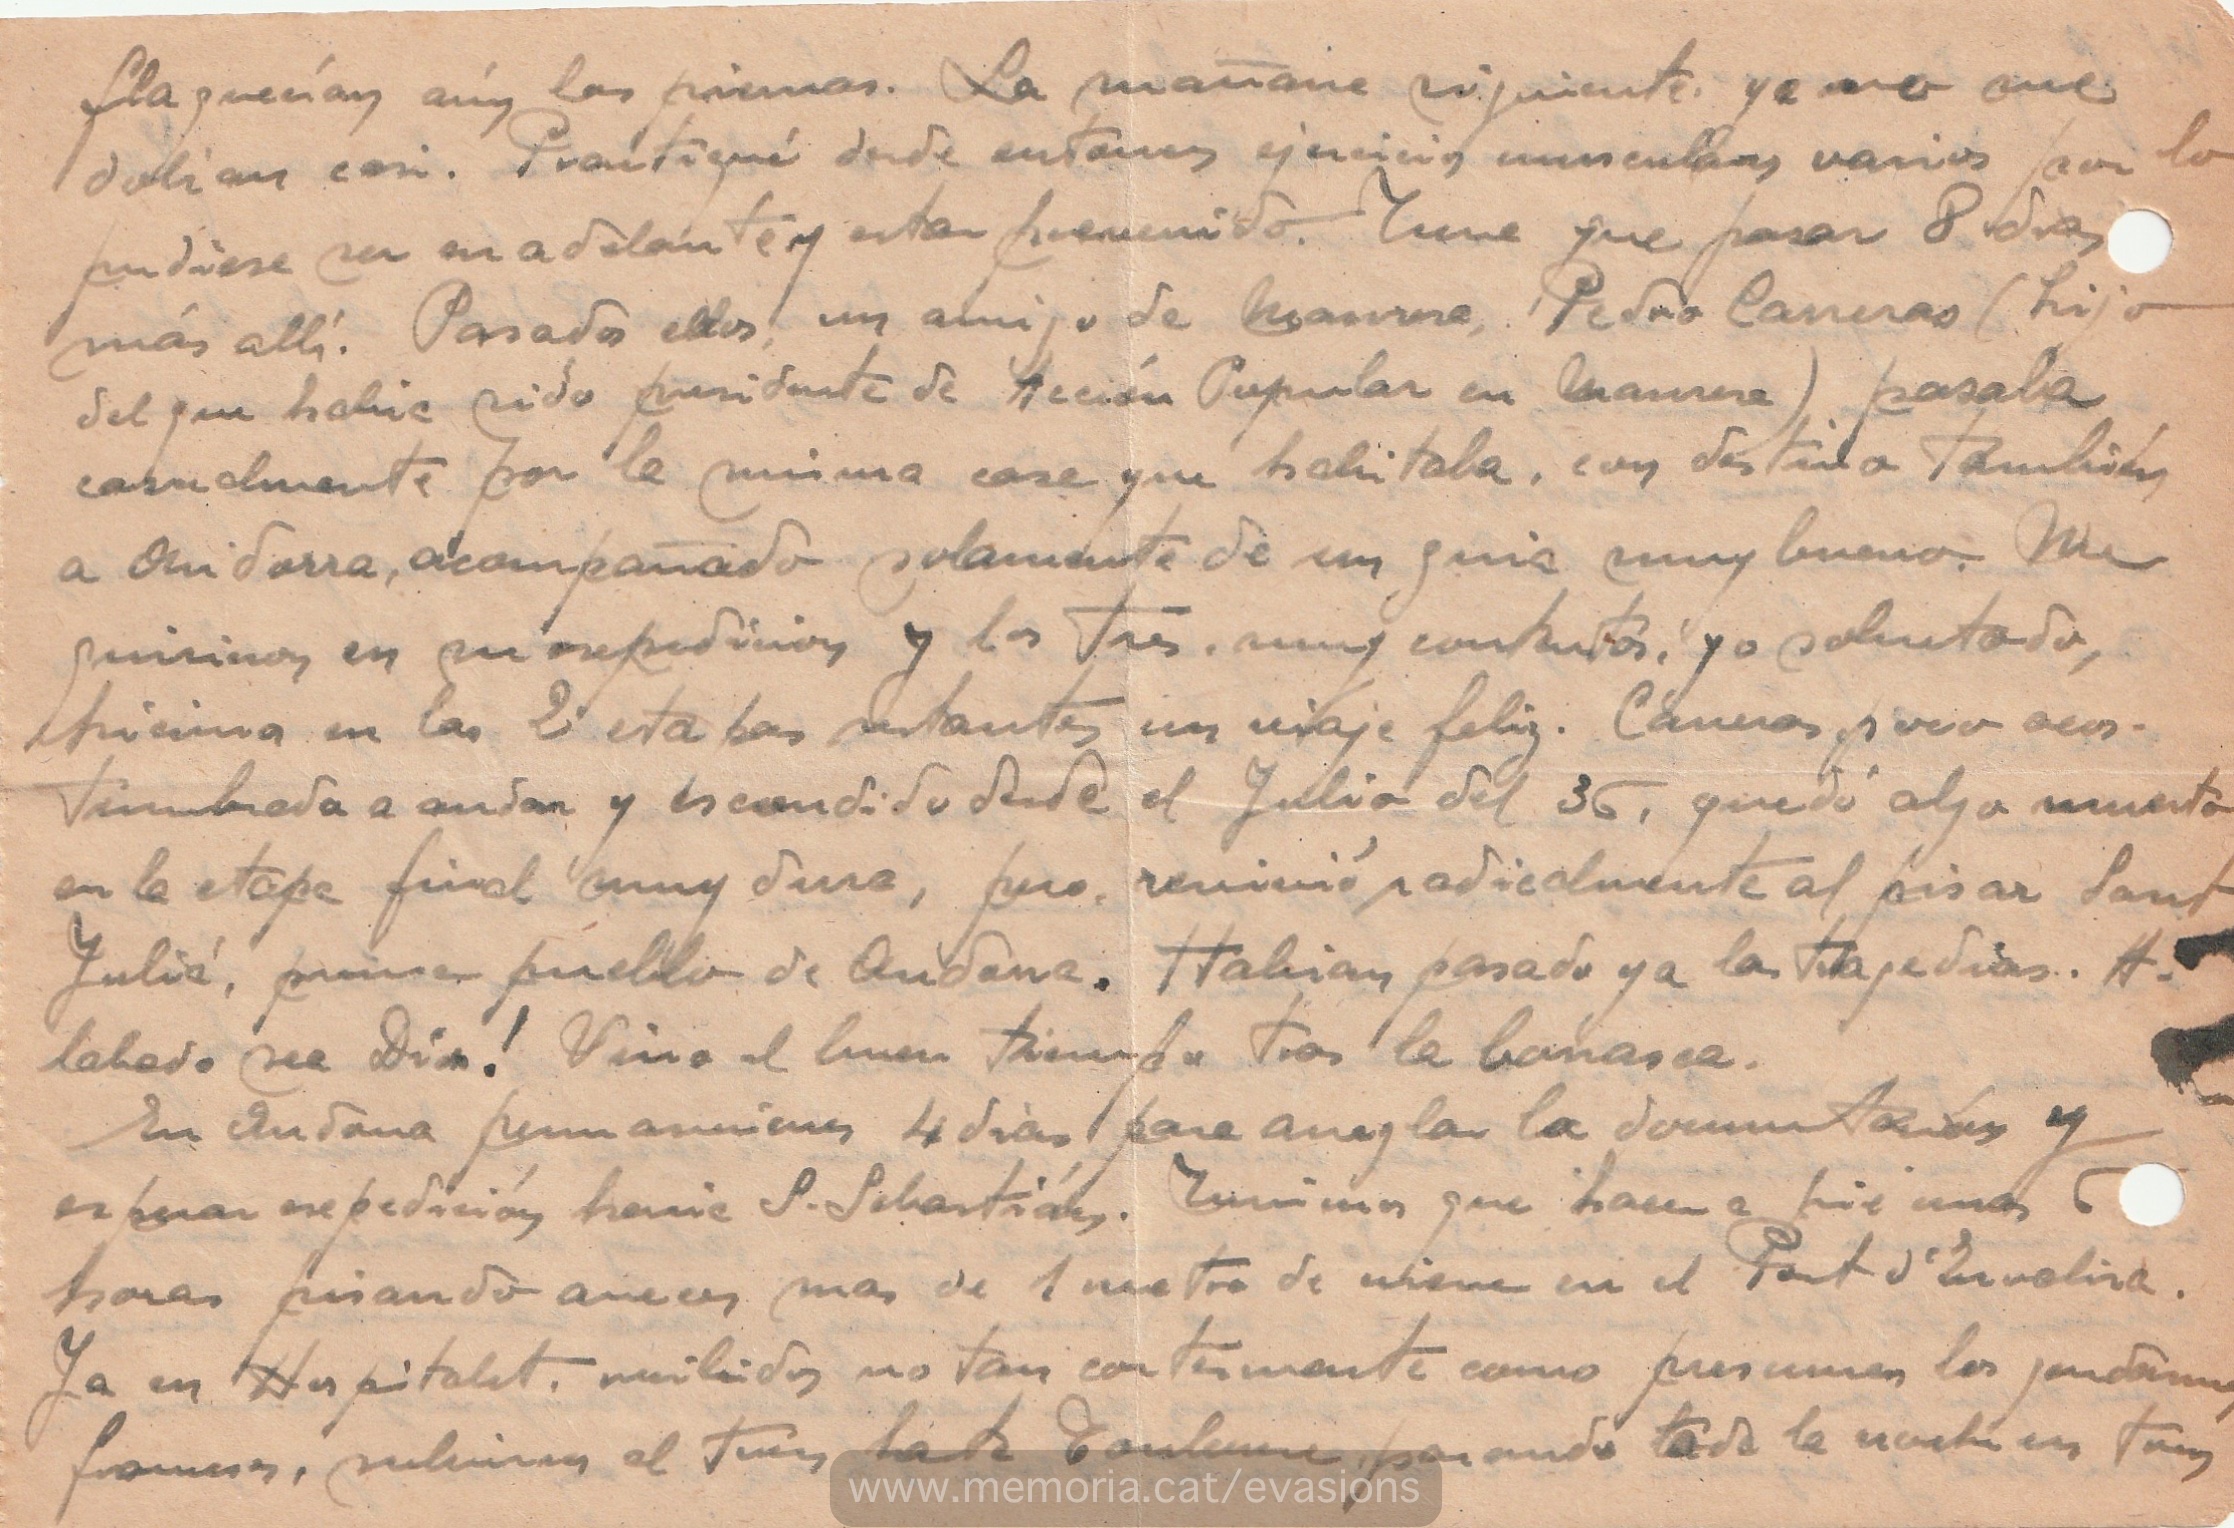 flaquerían aún las piernas. La mañana siguiente ya no me
dolían casi. Practiqué desde entonces ejercicios musculares varios por lo
pudiese ser en adelante y estar prevenido. Tuve que pasar 8 días
más allí. Pasados ellos, un amigo de Manresa, Pedro Carreras (hijo
del que había sido presidente de Acción Popular en Manresa) pasaba
casualmente por la misma casa que habitaba, con destino también
a Andorra, acompañado solamente de un guia muy bueno. Me
guiaron en su expedición y los tres, muy contentos, yo sobretodo,
hicimos en las 2 etapas restantes un viaje feliz. Carreras, poco acos-
tumbrado a andar y escondido desde el Julio del 36, quedó algo muerto
en la etapa final muy dura, pero, revivió radicalmente al pisar Sant
Juliá, primer pueblo de Andorra. Habían pasado ya las tragedias. A-
labado sea Dios! Vino el buen tiempo tras la borrasca.
En Andorra permanecimos 4 días para arreglar la documentación y
esperar expedición hacia S. Sebastián. Tuvimos que hacer a pié unas 6
horas pisando a veces mas de 1 metro de nieve en el Port d'Envalira.
Ya en Hospitalet, recibidos no tan cortesmente como presumen los gendarmes
franceses, subimos al tren hasta Toulouse, pasando toda la noche en tren
www.memoria.cat/evasions